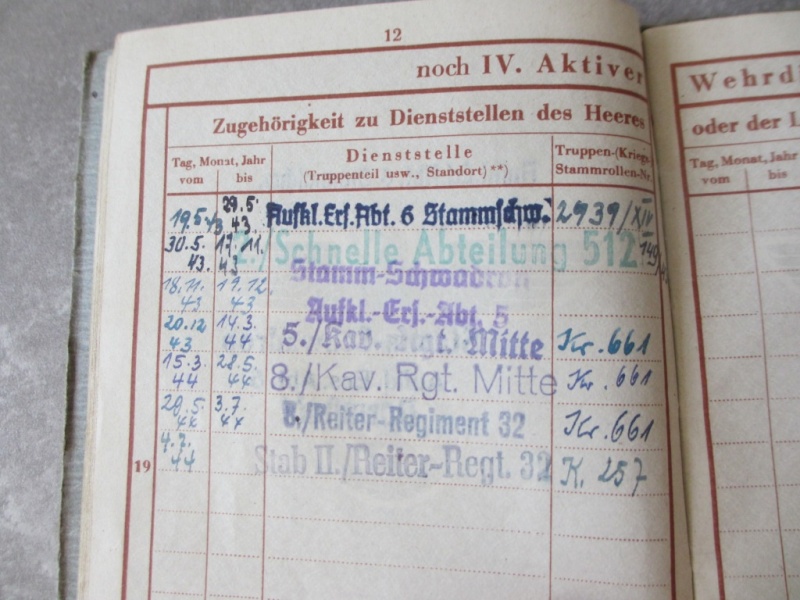 12
noch IV. Aktiver
Zugehörigkeit zu Dienststellen des Heeres
Tag, Monat, Jahr
vom bis
Dienststelle
(Truppenteil usw., Standort) **)
Truppen-(Kriegs-
Stammrollen-Nr.
19.5.43 29.5.43. Aufkl.Ers.Abt. 6 Stammschw. 2939/XIV
30.5.43. 17.11.43 2./Schnelle Abteilung 512 149/
18.11.43 19.12.43 Stamm-Schwadron
Aufkl.-Ers.-Abt. 5
20.12.43 14.3.44 5./Kav. Rgt. Mitte Kr. 661
15.3.44 28.5.44 8./Kav. Rgt. Mitte Kr. 661
28.5.44 3.7.44 8./Reiter-Regiment 32 Kr. 661
4.7.44 Stab II./Reiter-Regt. 32 K. 257
19
Wehrd
oder der L
Tag, Monat, Jahr
vom bis